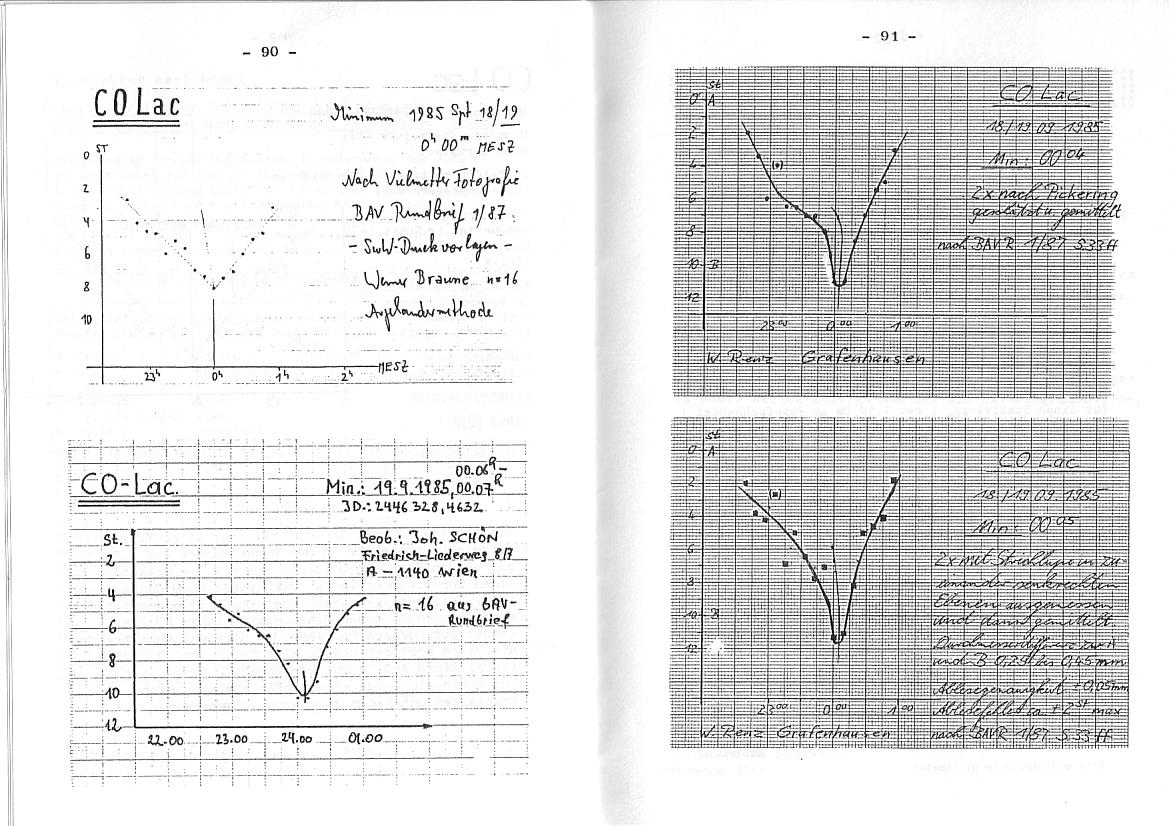 - 90 -
CO Lac
Minimum 1985 Spt 18/19
0ʰ 00ᵐ MESZ
Nach Vielmetter Fotografie
BAV Rundbrief 1/87:
- SuW-Druckvorlagen -
Werner Braune n=16
Argelandermethode
ST
0
2
4
6
8
10
23ʰ 0ʰ 1ʰ 2ʰ MESZ
CO-Lac.
00.06
Min.: 19.9.1985, 00.07
JD.: 2446 328,4632
Beob.: Joh. SCHÖN
Friedrich-Liederweg 8/7
A - 1140 Wien
n= 16 aus BAV-
Rundbrief
St.
2
4
6
8
10
12
22.00 23.00 24.00 01.00
- 91 -
St
0 A
2
4
6
8
10 B
12
CO Lac
18/19 09 1985
Min: 00 04
2x nach Pickering
geschätzt u. gemittelt
nach BAVR 1/87 S.33 ff
23 00 0 00 1 00
W. Renz Grafenhausen
St
0 A
2
4
6
8
10 B
12
CO Lac
18/19 09 1985
Min: 00 05
2x mit Strichlupe in zu-
einander senkrechten
Ebenen ausgemessen
und dann gemittelt.
Durchmesserdifferenz zu A
und B 0,29 bis 0,45 mm
Ablesegenauigkeit ± 0,05mm
Ablesefehler ca. ± 2 St max
nach BAVR 1/87 S 33 ff
23 00 0 00 1 00
W. Renz Grafenhausen